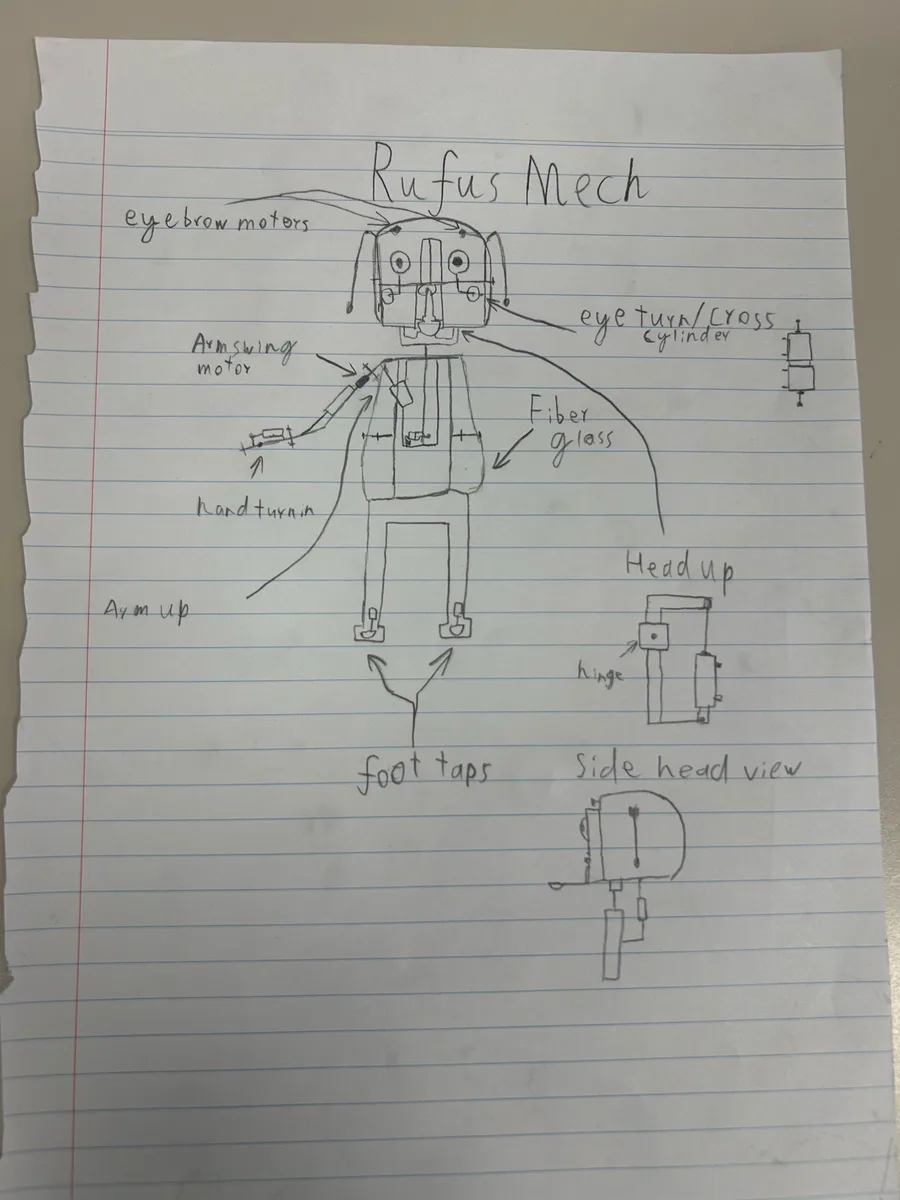 Rufus Mech
eyebrow motors
eye turn/cross
cylinder
Armswing
motor
Fiber
gloss
hand turnin
Head up
Arm up
hinge
foot taps
Side head view